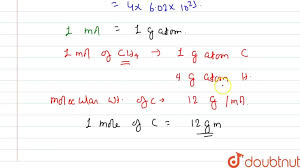 = 4 x 6.02 x 10²³
1 mA = 1 g atom.
1 mA of CH₄ → 1 g atom C
4 g atom H.
molecular wt. of C → 12 g /mA
1 mole of C = 12 gm
doubtnut